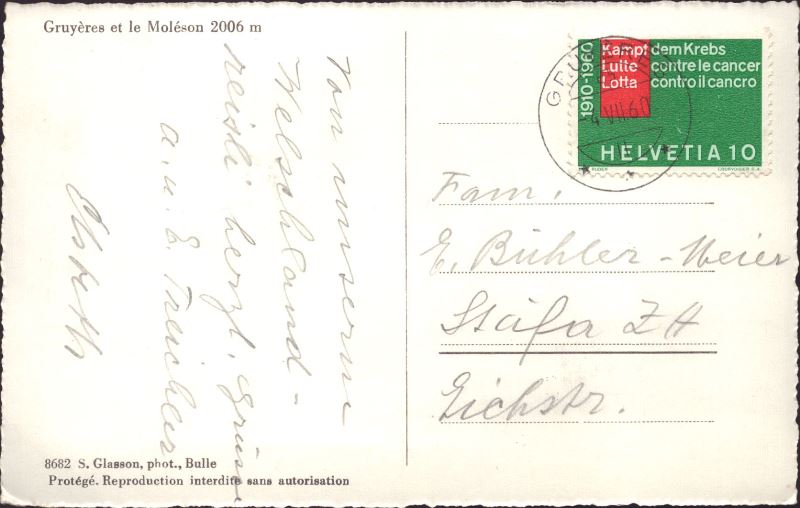 Gruyères et le Moléson 2006 m
Von unserem
Welschland-
reisli herzl. Grüsse
a. u. E. Treichler
Elsbeth
8682 S. Glasson, phot., Bulle
Protégé. Reproduction interdite sans autorisation
1910-1960
Kampf dem Krebs
Lutte contre le cancer
Lotta contro il cancro
HELVETIA 10
COURVOISIER S.A.
4.VII.60
Fam.
E. Bühler-Meier
Stäfa ZH
Eichstr.